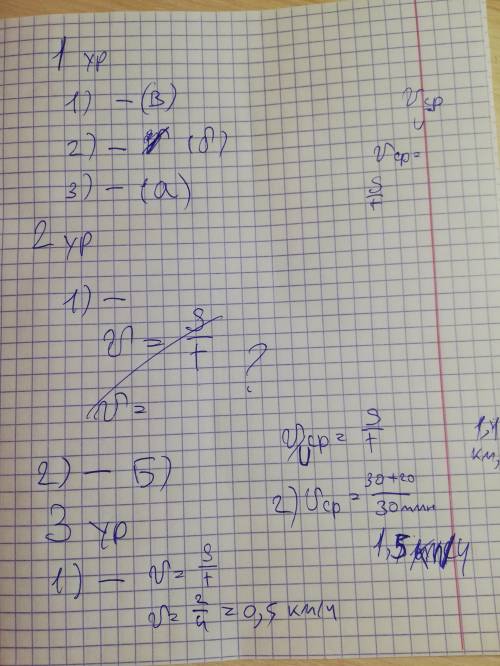 1 ур
1) - (в)
2) - (б)
3) - (а)
2 ур
1) -
v = S/t
v =
?
2) - Б)
3 ур
1) - v = S/t
v = 2/4 = 0,5 км/ч
vср
vср =
S/t
vср = S/t
2) vср = 30+20/30мин
1,5 км/ч
км,